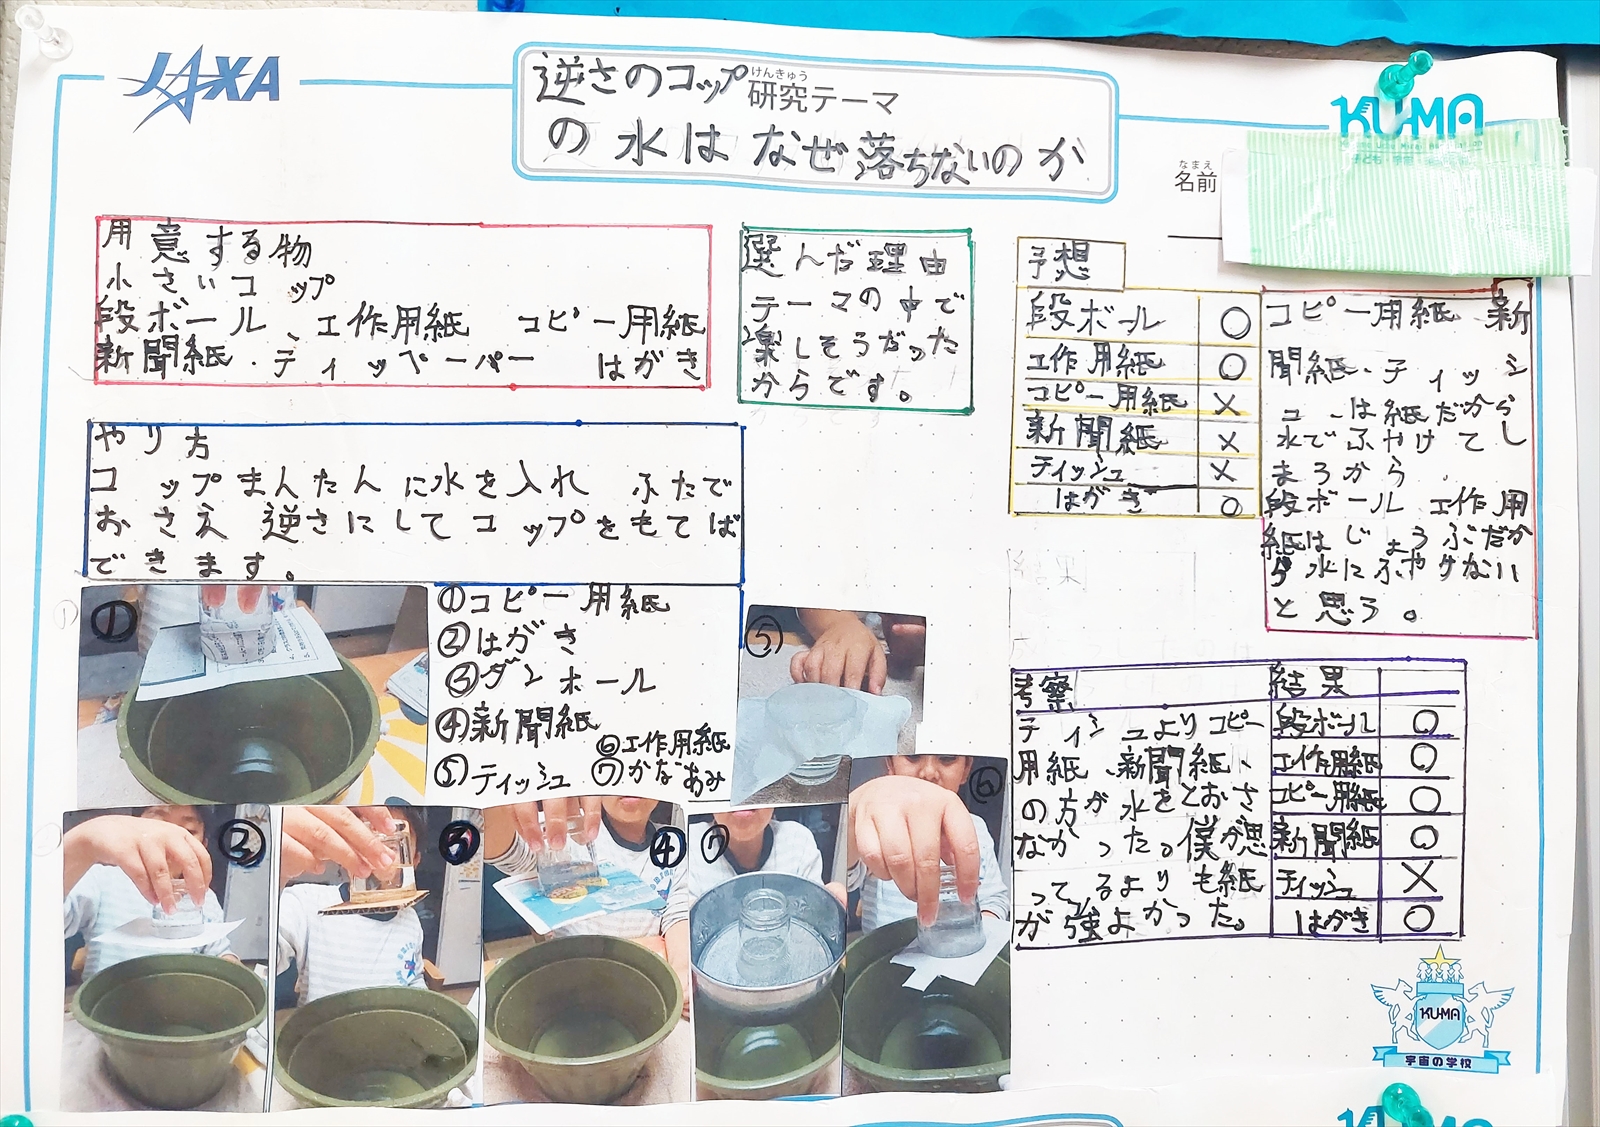 JAXA
逆さのコップ
けんきゅう
研究テーマ
の水はなぜ落ちないのか
KUMA
なまえ
名前
用意する物
小さいコップ
段ボール、工作用紙 コピー用紙
新聞紙・ティッペーパー はがき
選んだ理由
テーマの中で
楽しそうだった
からです。
予想
段ボール ○
工作用紙 ○
コピー用紙 ×
新聞紙 ×
ティッシュ ×
はがき ○
コピー用紙 新
聞紙、ティッシ
ュ、は紙だから
水でふやけてし
まろから
段ボール 工作用
紙はじょうぶだか
ら水にふやけない
と思う。
やり方
コップまんたんに水を入れ ふたで
おさえ 逆さにしてコップをもてば
できます。
①コピー用紙
②はがき
③ダンボール
④新聞紙
⑥工作用紙
⑤ティッシュ ⑦かなあみ
①
⑤
⑥
②
③
④
⑦
考察
ティシュよりコピー
用紙、新聞紙、
の方が水をとおさ
なかった。僕が思
ってるよりも紙
が強よかった。
結果
段ボール ○
工作用紙 ○
コピー用紙 ○
新聞紙 ○
ティシュ ×
はがき ○
KU-MA
宇宙の学校
KUMA